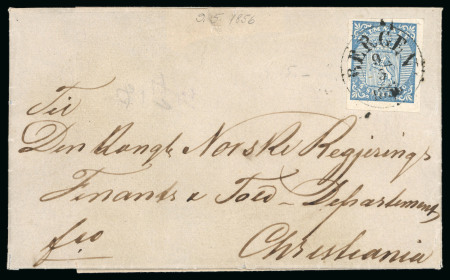 9/5 1856
BERGEN
9
5
1856
Til
Den Kongl. Norske Regjerings
Finants & Told-Departement
fro
Christiania